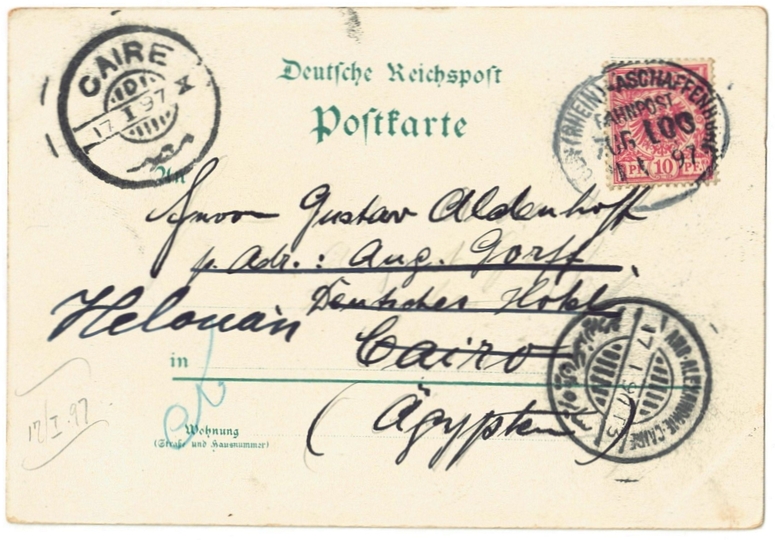 Deutsche Reichspost
Postkarte
CAIRE
D
17.I.97 X
(RHEIN)-ASCHAFFENBURG
BAHNPOST
ZUG 106
97
10 PF
An
Herrn Gustav Aldenhoff
p. Adr.: Aug. Gorff
Deutsches Hotel
Helouan
Cairo
in
(Ägypten)
Wohnung
(Straße und Hausnummer)
17/I.97
AMB-ALEXANDRIE-CAIRE
17 I 97